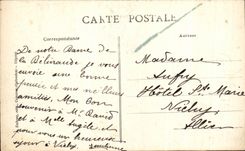 CARTE POSTALE
Correspondance
Adresse
De notre Dame de
la Délivrande je vous
envoie une bonne
pensée et mes meilleures
amitiés. Mon bon
souvenir à Mr David
et à Melle Angèle et
pour vous un heureux
séjour à Vichy.
Madame
Hôtel Ste Marie
Vichy
Allier